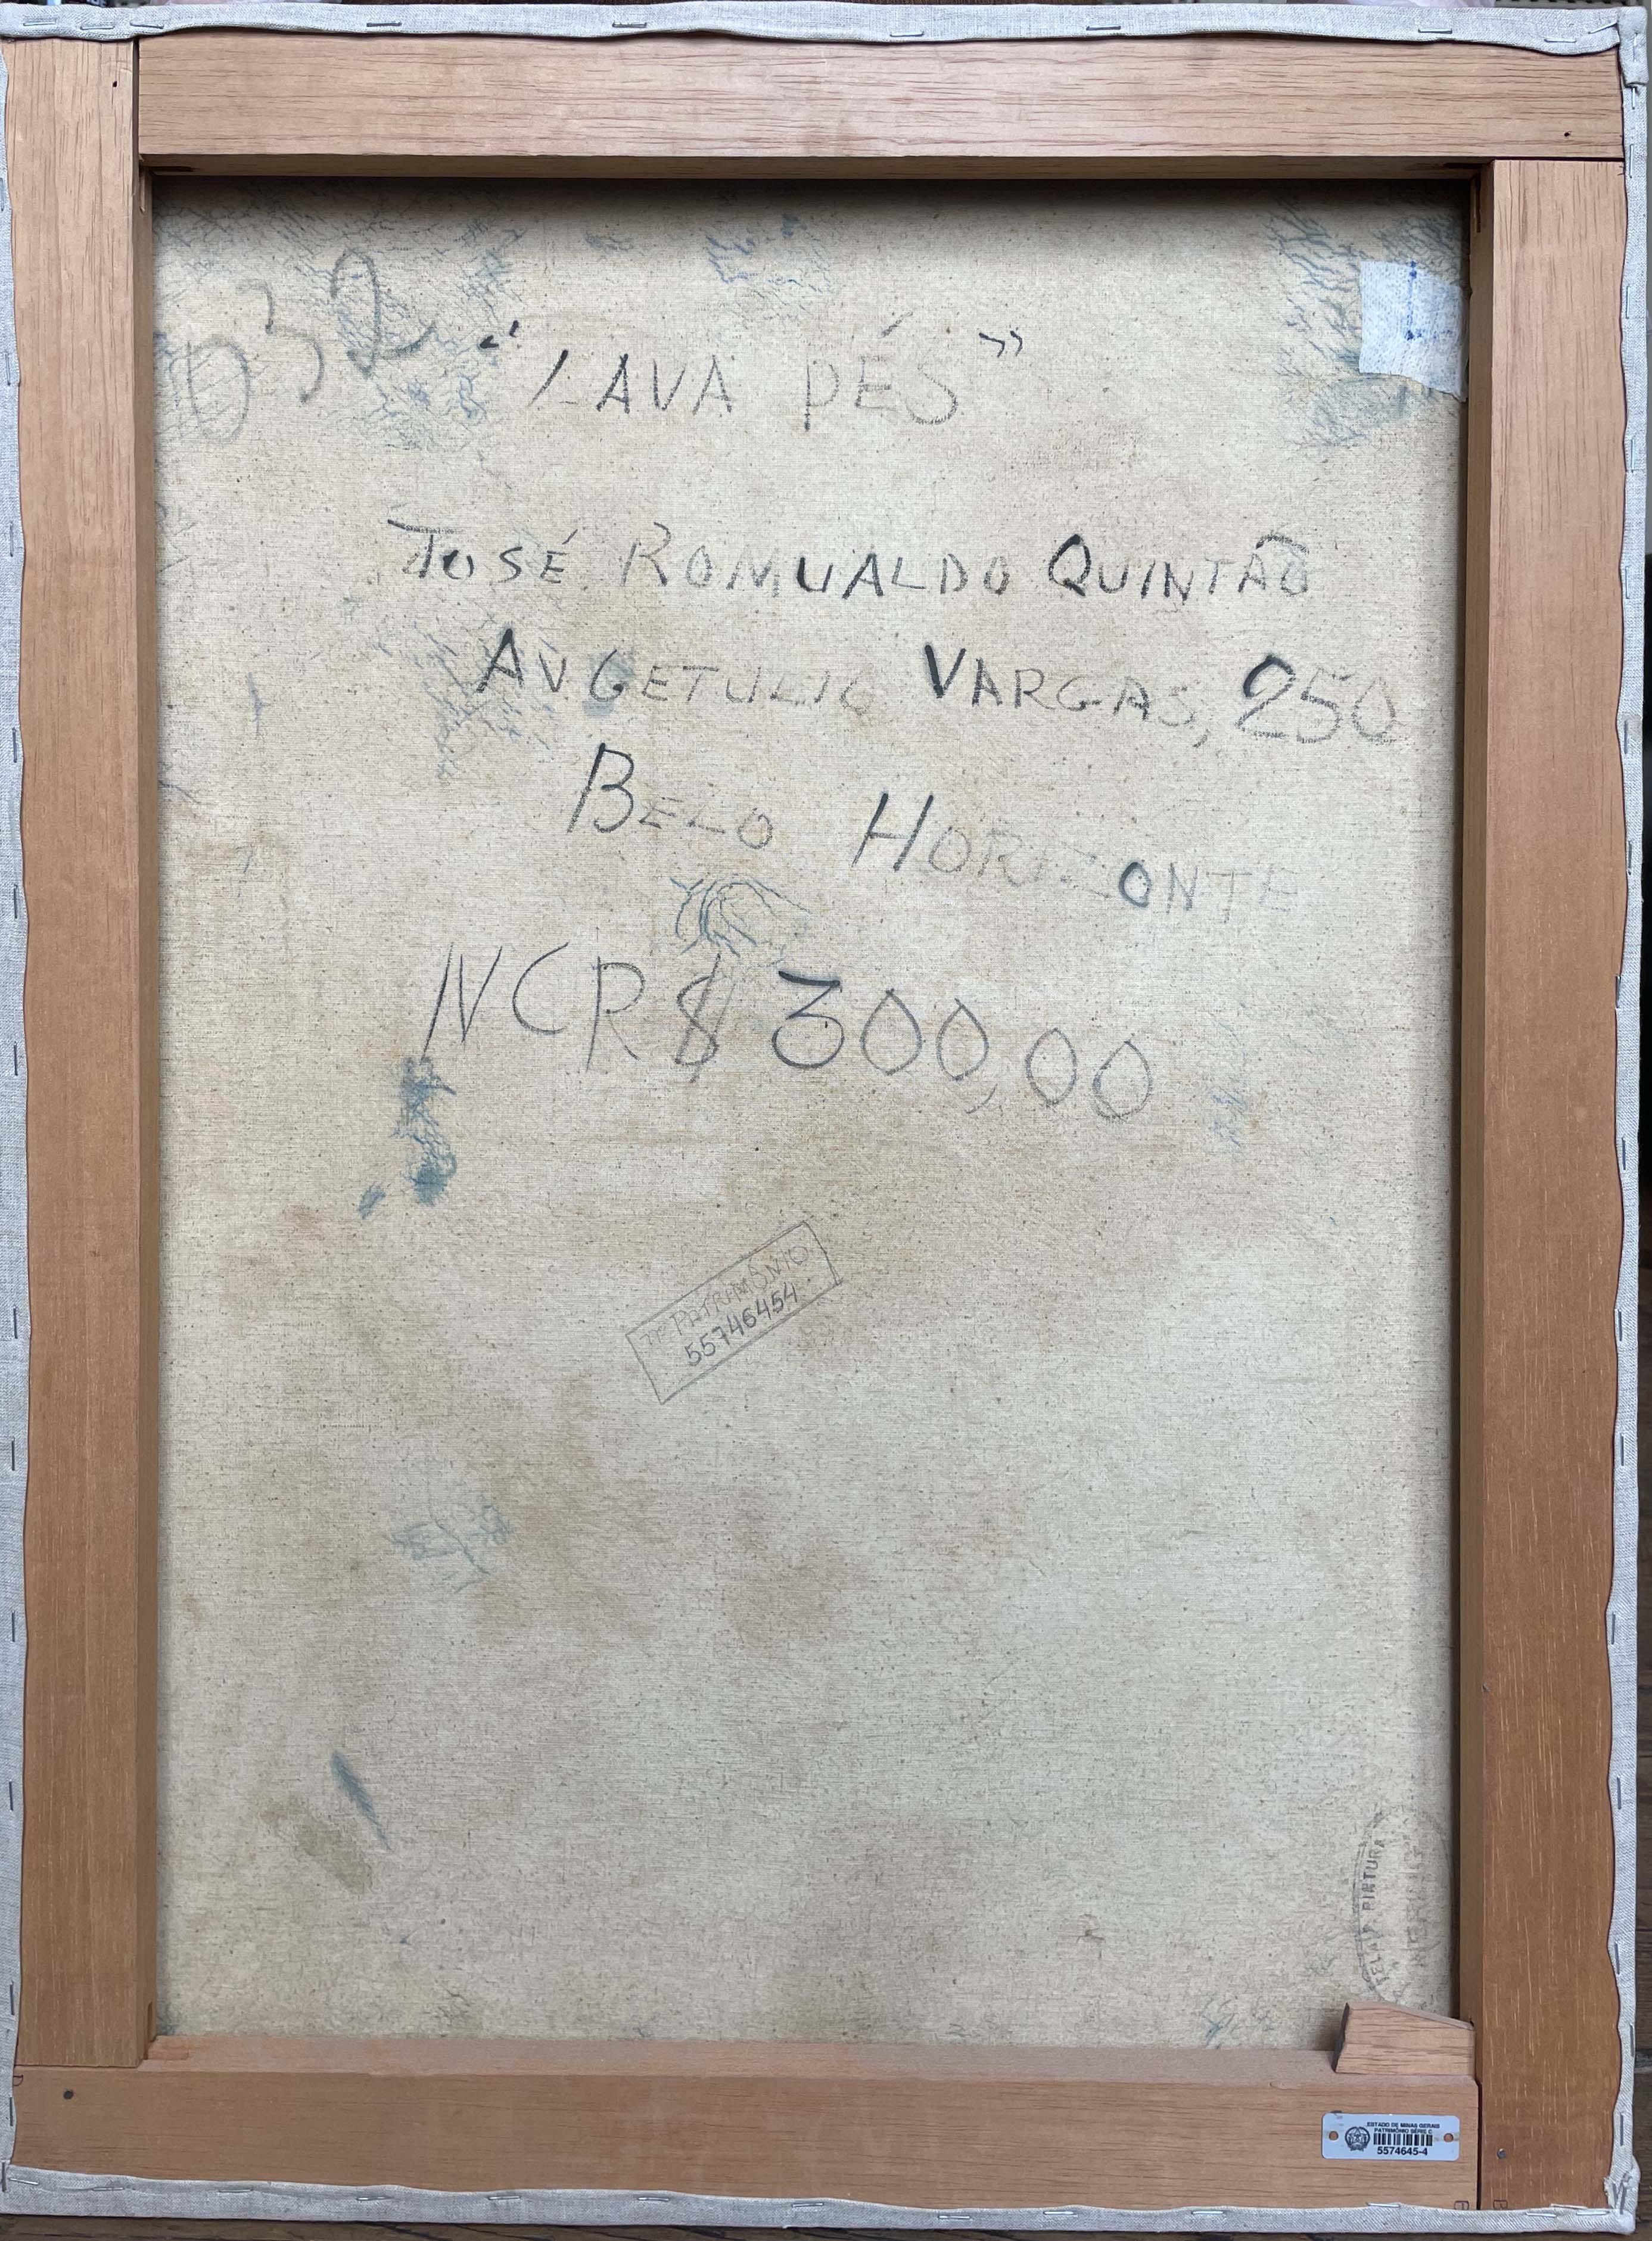 032
"LAVA PÉS"
JOSÉ ROMUALDO QUINTÃO
AV. GETULIO VARGAS, 250
BELO HORIZONTE
NCR$ 300,00
Nº PATRIMÔNIO
55746454
TELA P. PINTURA
ESTADO DE MINAS GERAIS
PATRIMÔNIO SÉRIE C
5574645-4